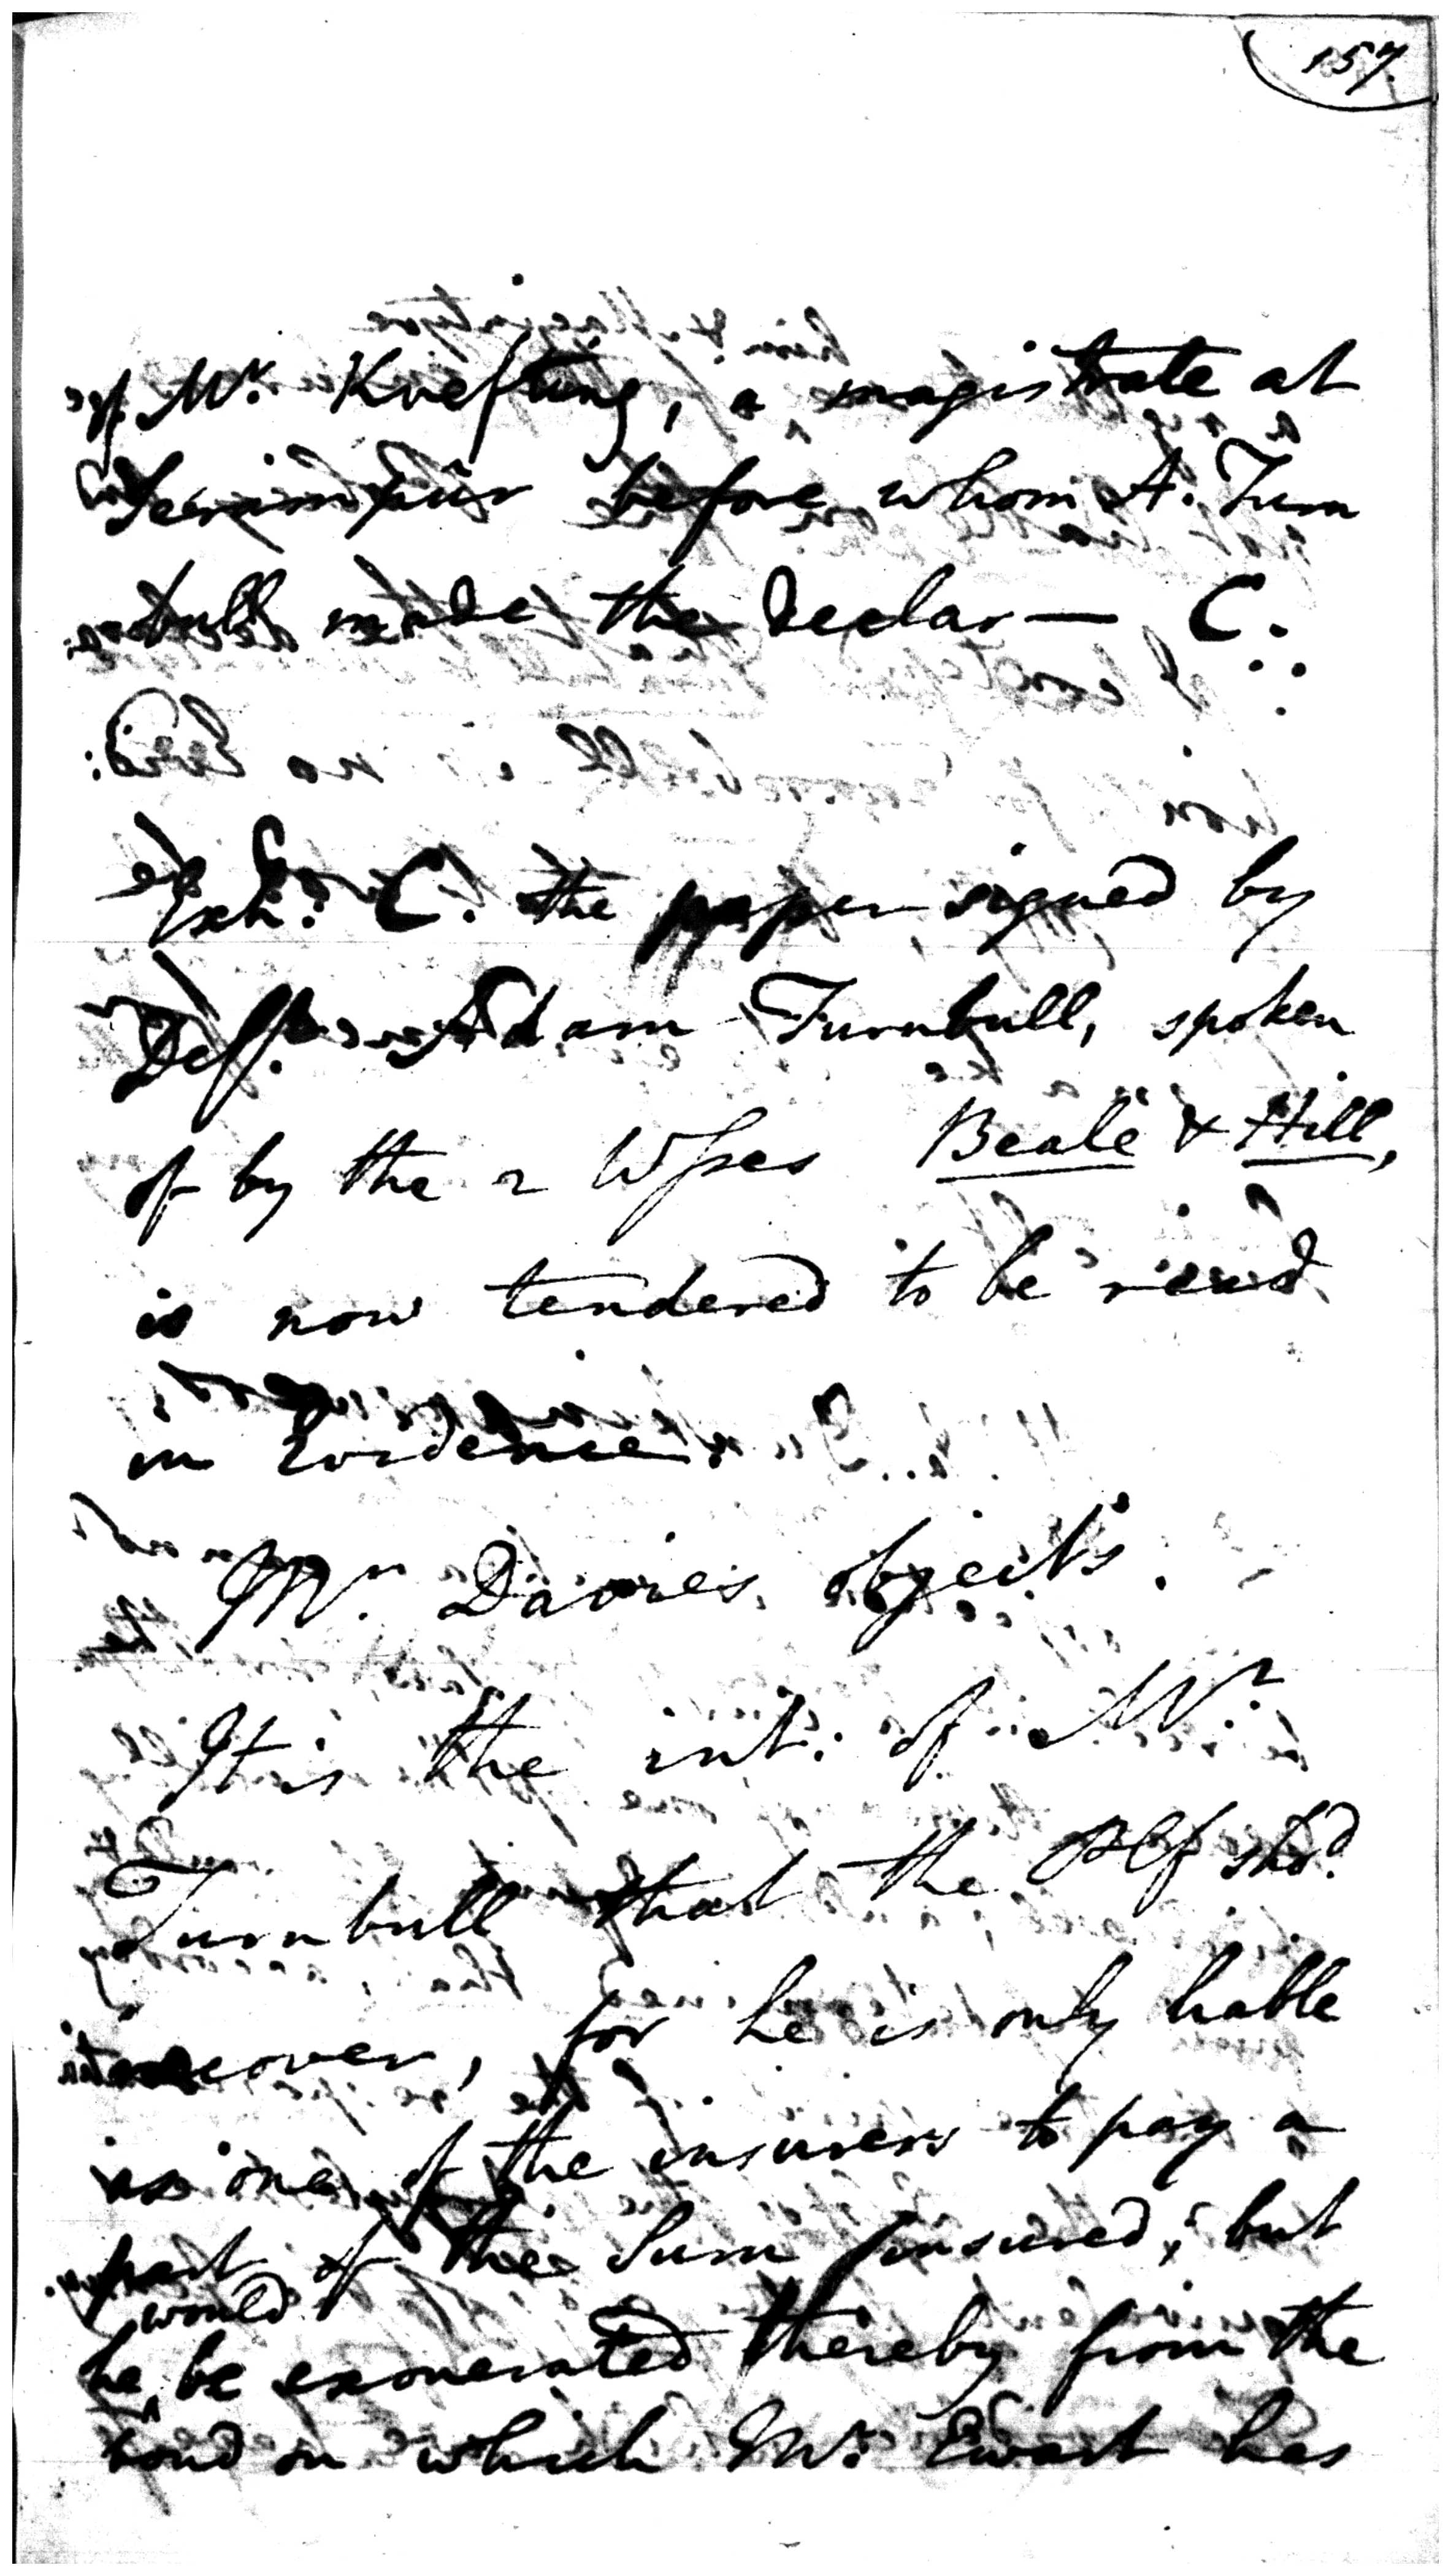 157.
of Mr. Krefting, a magistrate at
Serampûr before whom A. Turn
bull made the declar — C.
Exh: C. the paper signed by
Deft. Adam Turnbull, spoken
of by the 2 Wſses Beale & Hill,
is now tendered to be read
in Evidence.
Mr. Davies objects.
It is the int: of Mr.
Turnbull that the Plf shd.
recover, for he is only liable
as one of the insurers to pay a
part of the Sum insured; but
would
he ‸ be exonerated thereby from the
bond on which Mr. Ewart has